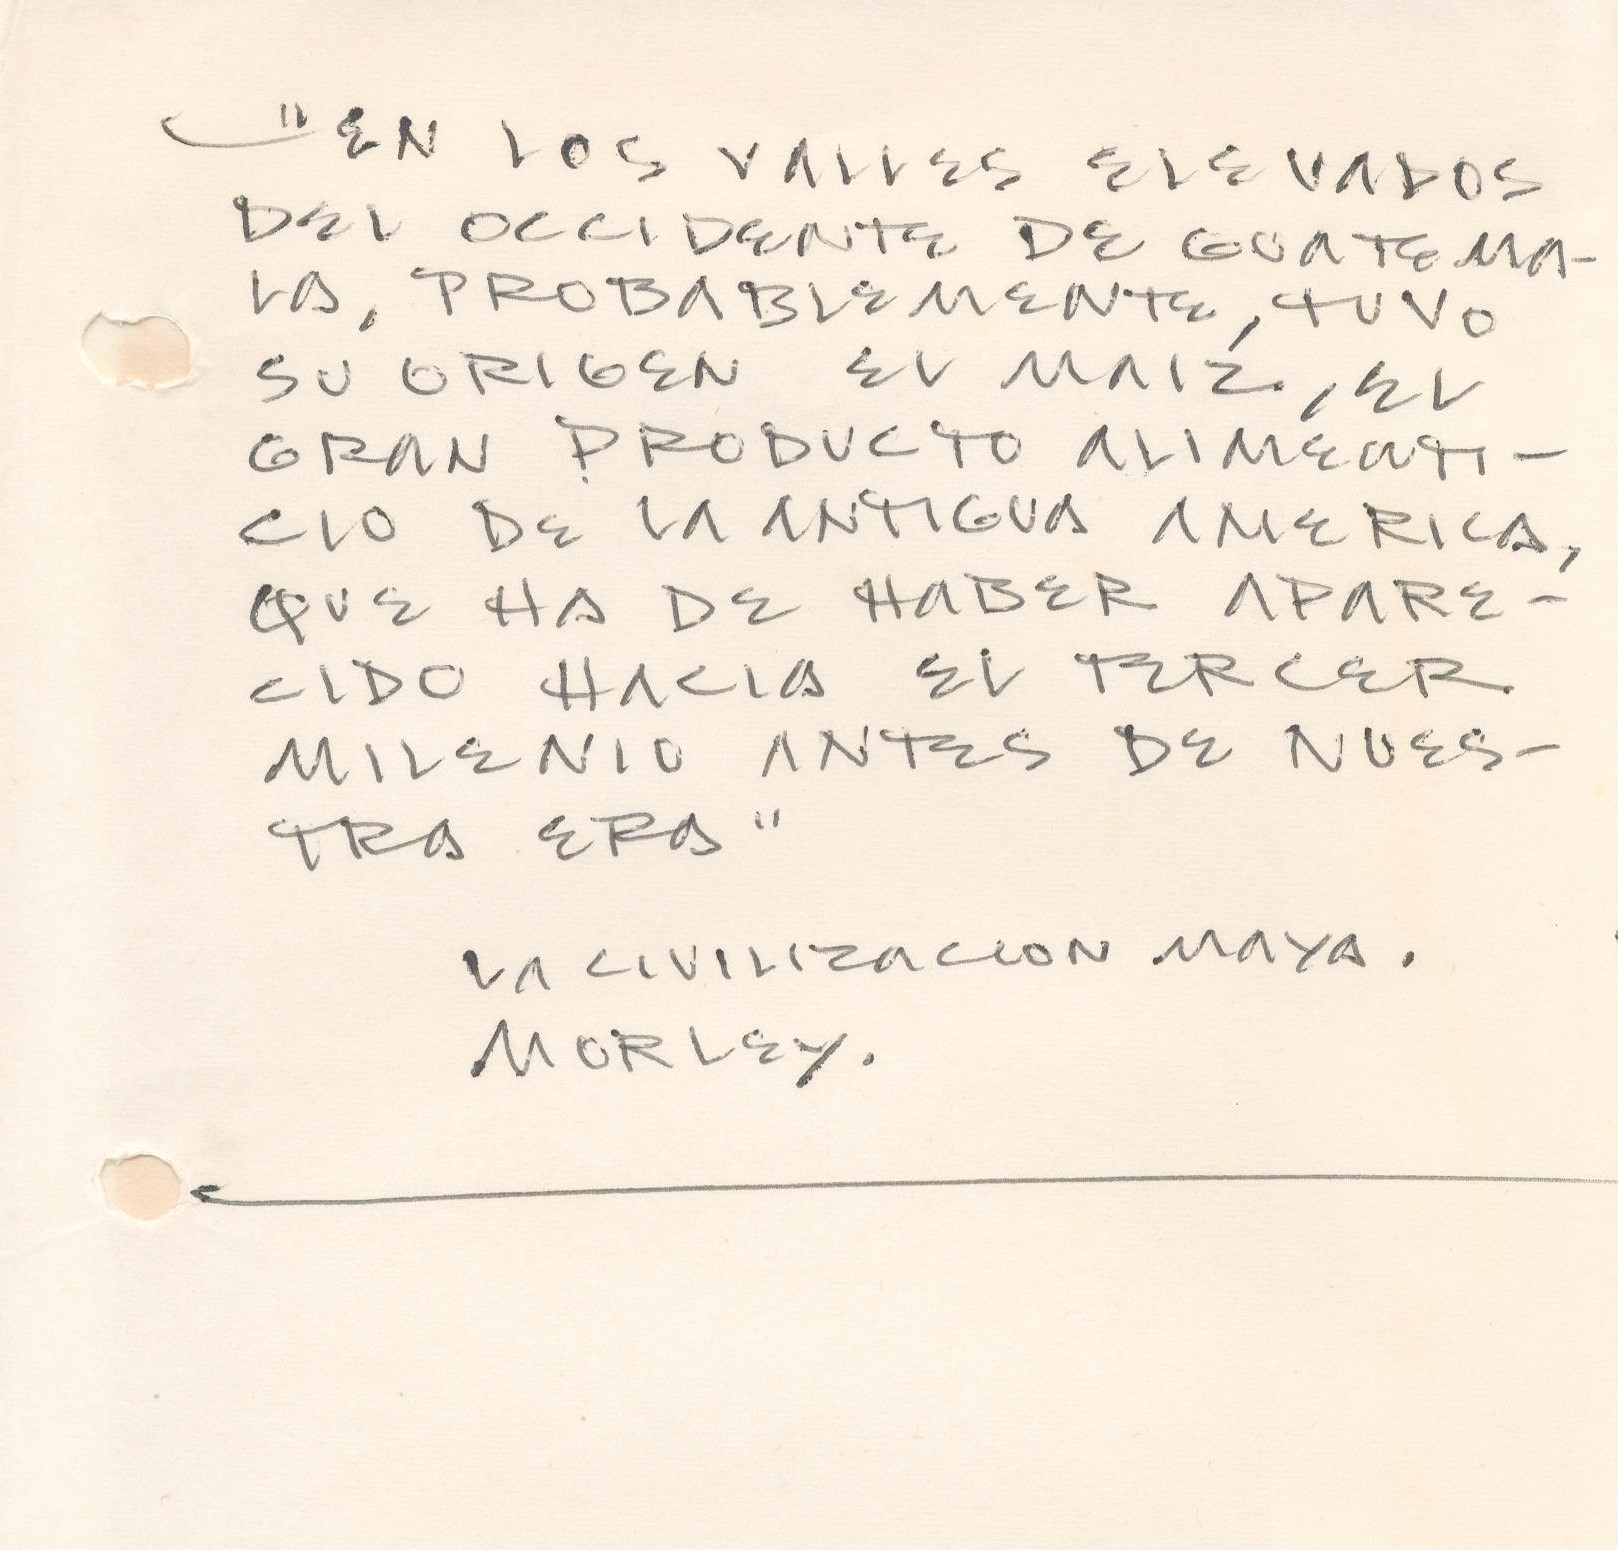 "EN LOS VALLES ELEVADOS
DEL OCCIDENTE DE GUATEMA-
LA, PROBABLEMENTE, TUVO
SU ORIGEN EL MAIZ, EL
GRAN PRODUCTO ALIMENTI-
CIO DE LA ANTIGUA AMERICA,
QUE HA DE HABER APARE-
CIDO HACIA EL TERCER
MILENIO ANTES DE NUES-
TRA ERA"
LA CIVILIZACION MAYA.
MORLEY.